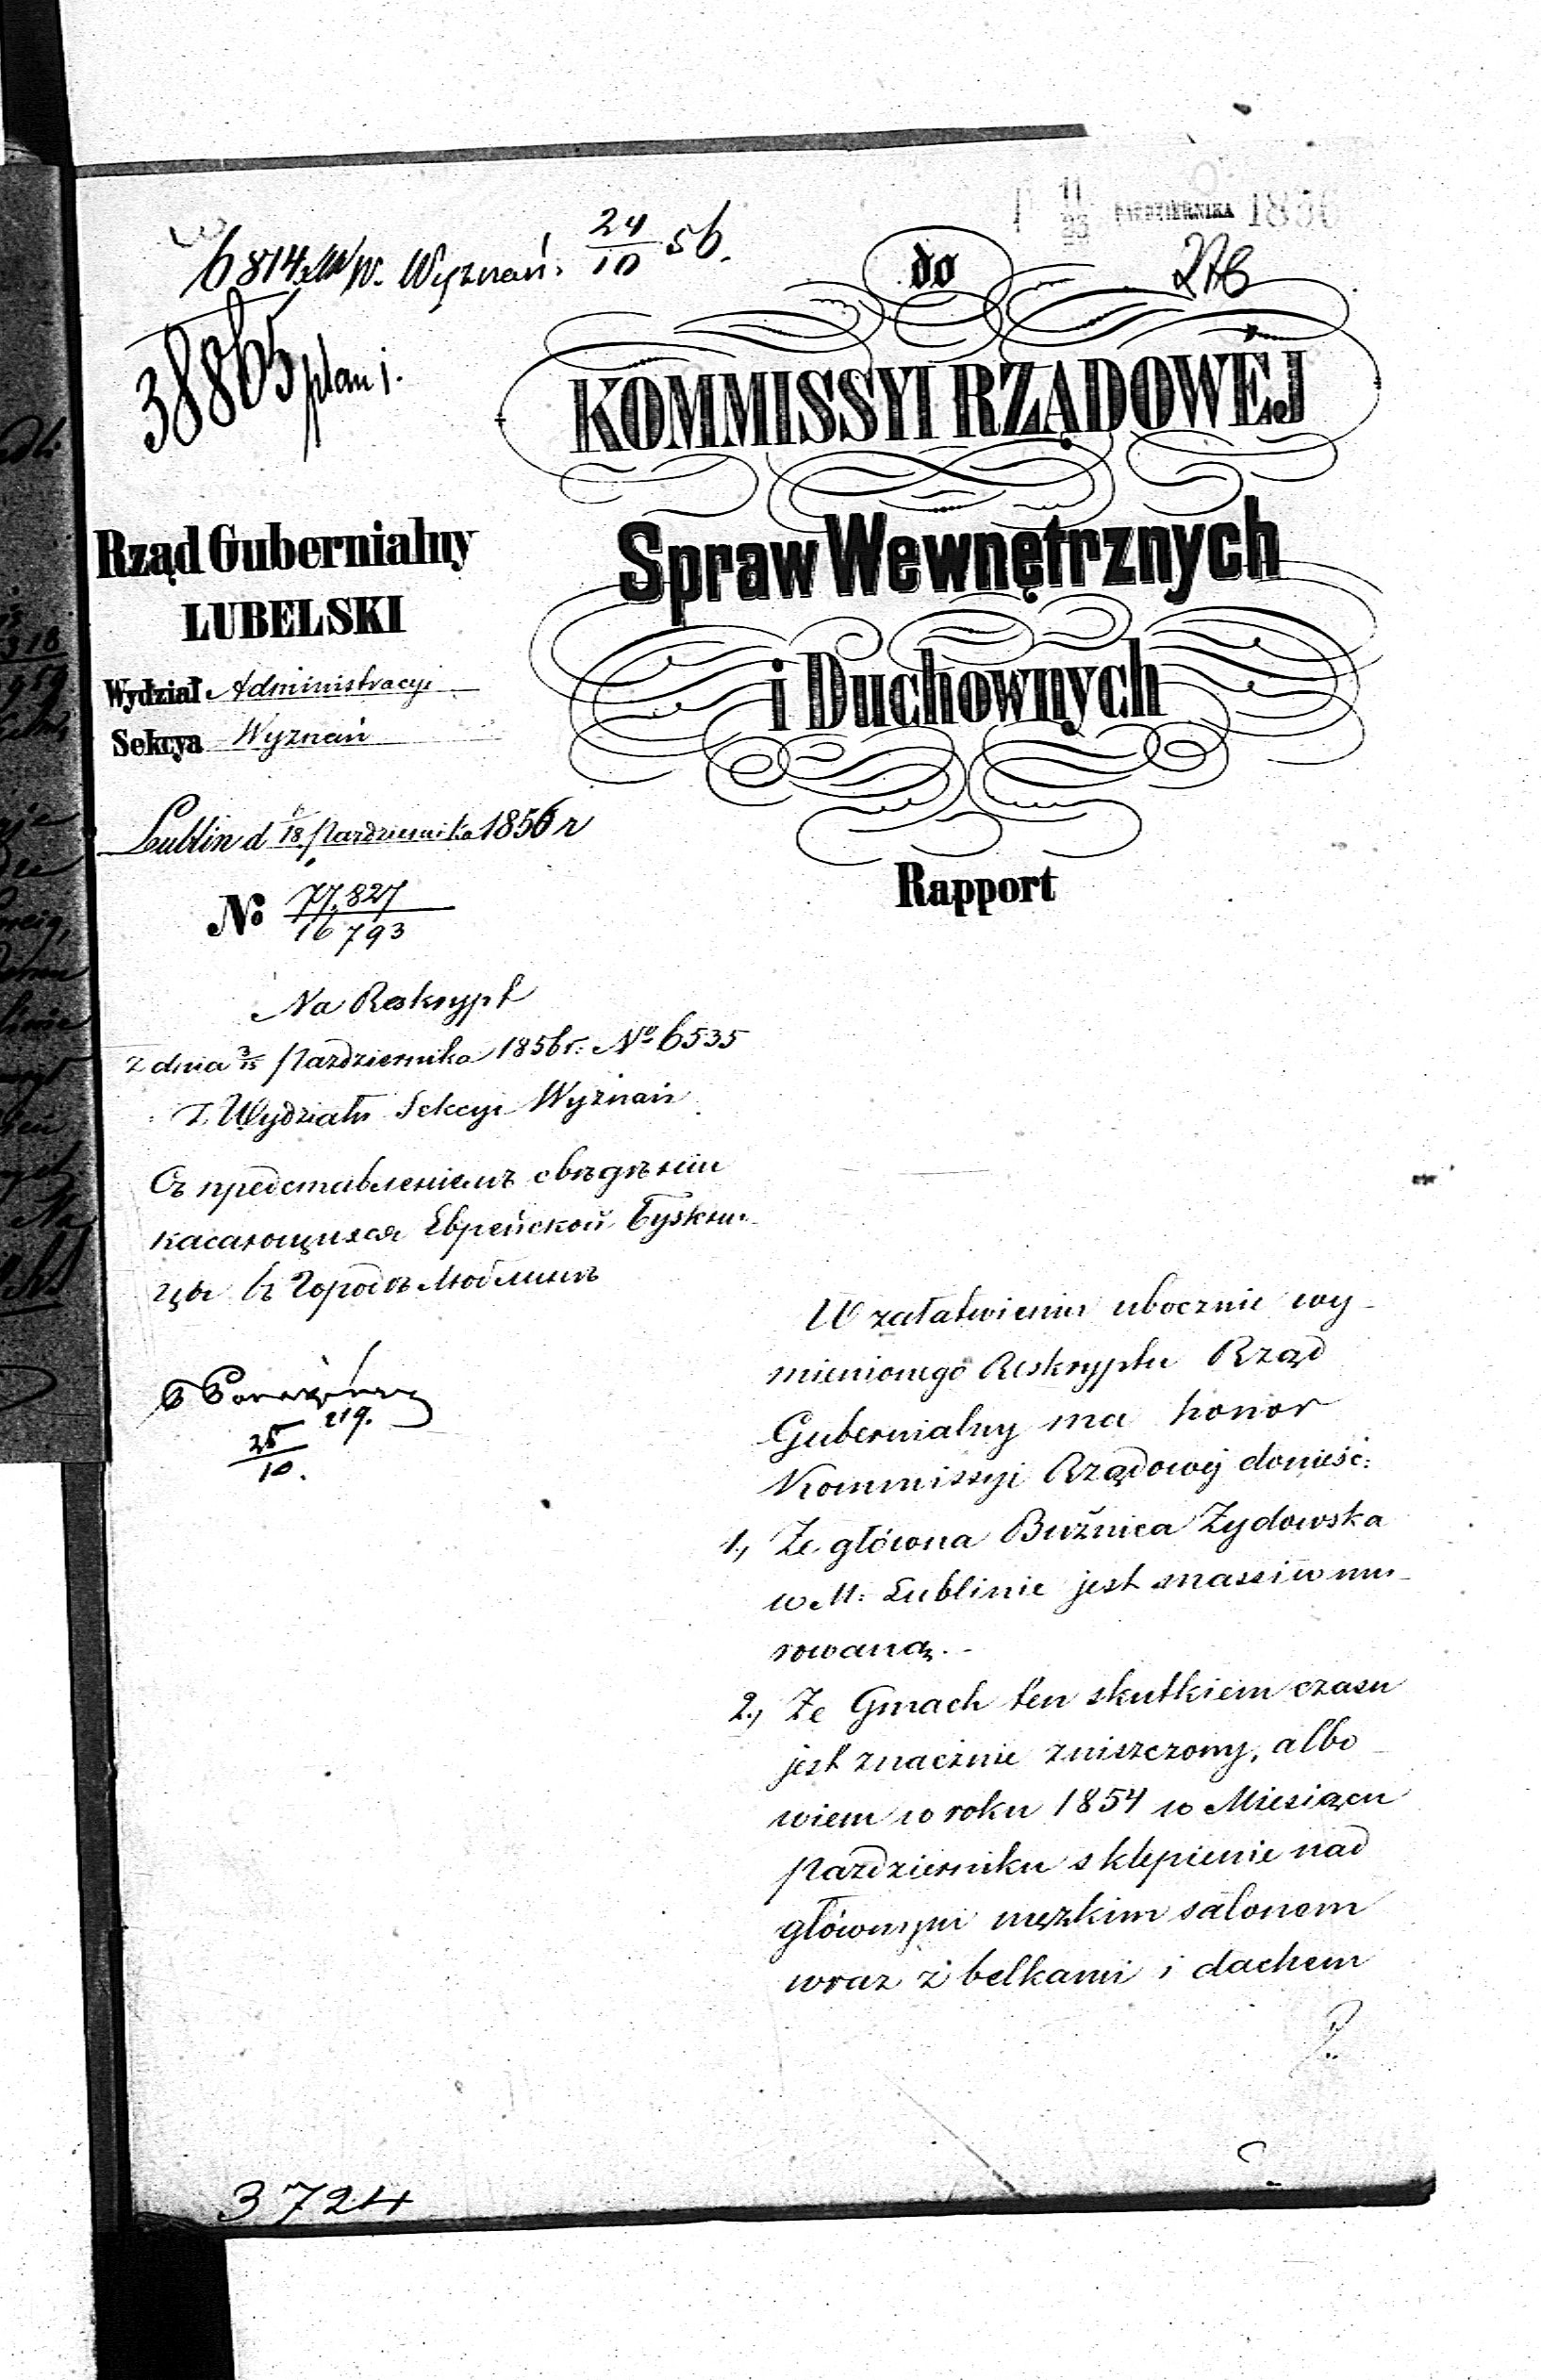 11
23
PAŹDZIERNIKA 1856
6814 W. Wyznań. 24/10 56.
276
38865 plan j.
do
KOMMISSYI RZĄDOWÉJ
Spraw Wewnętrznych
i Duchownych
Rapport
Rząd Gubernialny
LUBELSKI
Wydział Administracyi
Sekcya Wyznań
Lublin d 6/18 Pazdziernika 1856 r
No 77,827
16 793
Na Reskrypt
z dnia 3/15 Pazdziernika 1856 r: No 6535
z Wydziału Sekcyi Wyznań
Съ представленіемъ свѣдѣніи
касающихся Еврейской Бужни-
цы въ Городѣ Люблинѣ
219.
25
10.
W załatwieniu ubocznie wy-
mienionego Reskryptu Rząd
Gubernialny ma honor
Kommissyi Rządowej donieść:
1., Ze główna Bużnica Zydowska
w M: Lublinie jest massiw mu-
rowaną.-
2., Ze Gmach ten skutkiem czasu
jest znacznie zniszczony, albo-
wiem w roku 1854 w Miesiącu
Pazdzierniku sklepienie nad
głównym męzkim salonem
wraz z belkami i dachem
3724